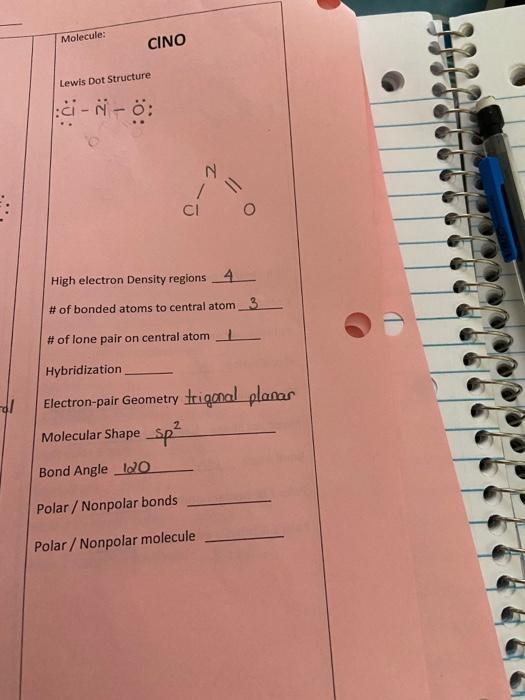 Molecule:
ClNO
Lewis Dot Structure
:C̈l - N̈ - Ö:
N
Cl O
High electron Density regions 4
# of bonded atoms to central atom 3
# of lone pair on central atom 1
Hybridization
Electron-pair Geometry trigonal planar
Molecular Shape sp²
Bond Angle 120
Polar / Nonpolar bonds
Polar / Nonpolar molecule